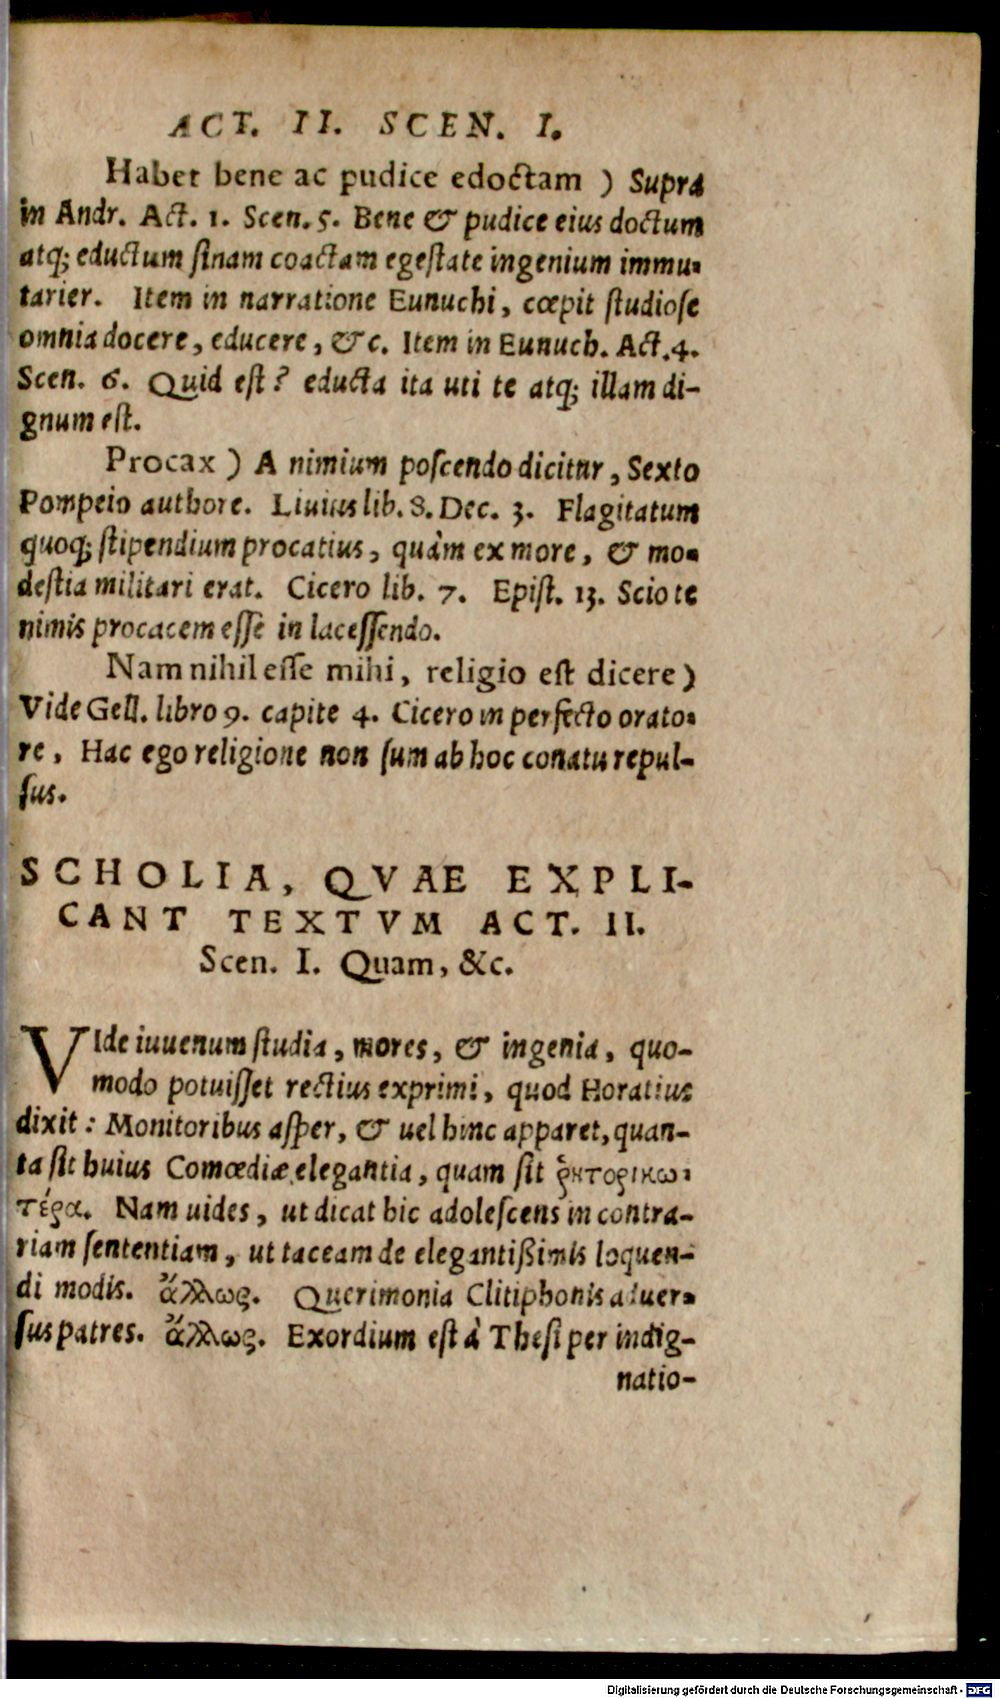 ACT. II. SCEN. I.
Habet bene ac pudice edoctam ) Supra
in Andr. Act. 1. Scen. 5. Bene & pudice eius doctum
atq; eductum sinam coactam egestate ingenium immu-
tarier. Item in narratione Eunuchi, cœpit studiose
omnia docere, educere, &c. Item in Eunuch. Act. 4.
Scen. 6. Quid est? educta ita uti te atq; illam di-
gnum est.
Procax ) A nimium poscendo dicitur, Sexto
Pompeio authore. Liuius lib. 8. Dec. 3. Flagitatum
quoq; stipendium procatius, quàm ex more, & mo-
destia militari erat. Cicero lib. 7. Epist. 13. Scio te
nimis procacem esse in lacessendo.
Nam nihil esse mihi, religio est dicere )
Vide Gell. libro 9. capite 4. Cicero in perfecto orato-
re, Hac ego religione non sum ab hoc conatu repul-
sus.
SCHOLIA, QVAE EXPLI-
CANT TEXTVM ACT. II.
Scen. I. Quam, &c.
VIde iuuenum studia, mores, & ingenia, quo-
modo potuisset rectius exprimi, quod Horatius
dixit: Monitoribus asper, & uel hinc apparet, quan-
ta sit huius Comœdiæ elegantia, quam sit ῥητορικω-
τέρα. Nam uides, ut dicat hic adolescens in contra-
riam sententiam, ut taceam de elegantißimis loquen-
di modis. ἄλλως. Querimonia Clitiphonis aduer-
sus patres. ἄλλως. Exordium est à Thesi per indig-
natio-
Digitalisierung gefördert durch die Deutsche Forschungsgemeinschaft - DFG